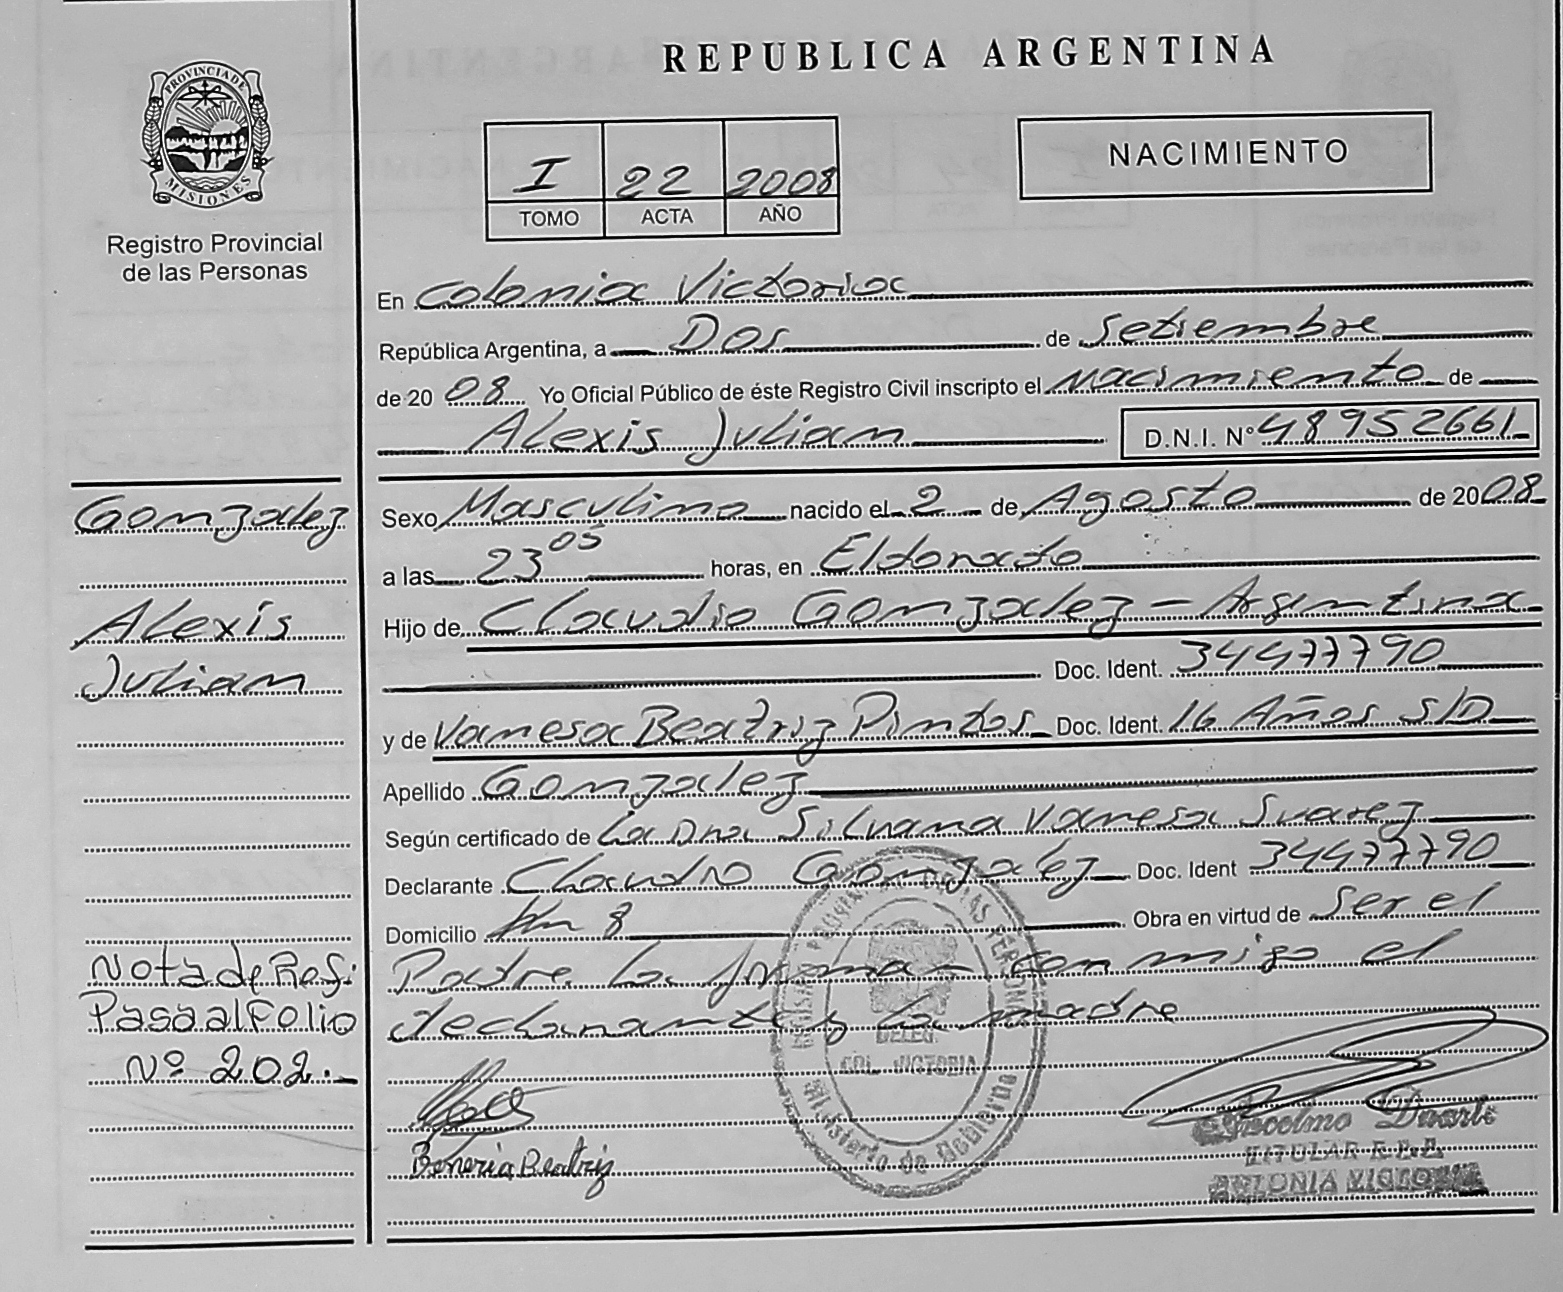 REPUBLICA ARGENTINA
PROVINCIA DE
MISIONES
Registro Provincial
de las Personas
I 22 2008
TOMO ACTA AÑO
NACIMIENTO
En Colonia Victoria
República Argentina, a Dos de Setiembre
de 20 08 Yo Oficial Público de éste Registro Civil inscripto el Nacimiento de
Alexis Julian D.N.I. N° 48952661
Gonzalez
Alexis
Julian
Sexo Masculino nacido el 2 de Agosto de 2008
a las 23 05 horas, en Eldorado
Hijo de Claudio Gonzalez - Argentina
Doc. Ident. 34477790
y de Vanesa Beatriz Pintos Doc. Ident. 16 Años S/D
Apellido Gonzalez
Según certificado de La Dra Silvana Vanesa Suarez
Declarante Claudio Gonzalez Doc. Ident 34477790
Domicilio Km 8 Obra en virtud de Ser el
Padre La firman conmigo el
declarante y la madre
Nota de Ref:
Pasa al Folio
Nº 202.
DELEG.
COL. VICTORIA
Ministerio de Gobierno
Beatriz
Duarte
TITULAR R.P.P.
COLONIA VICTORIA